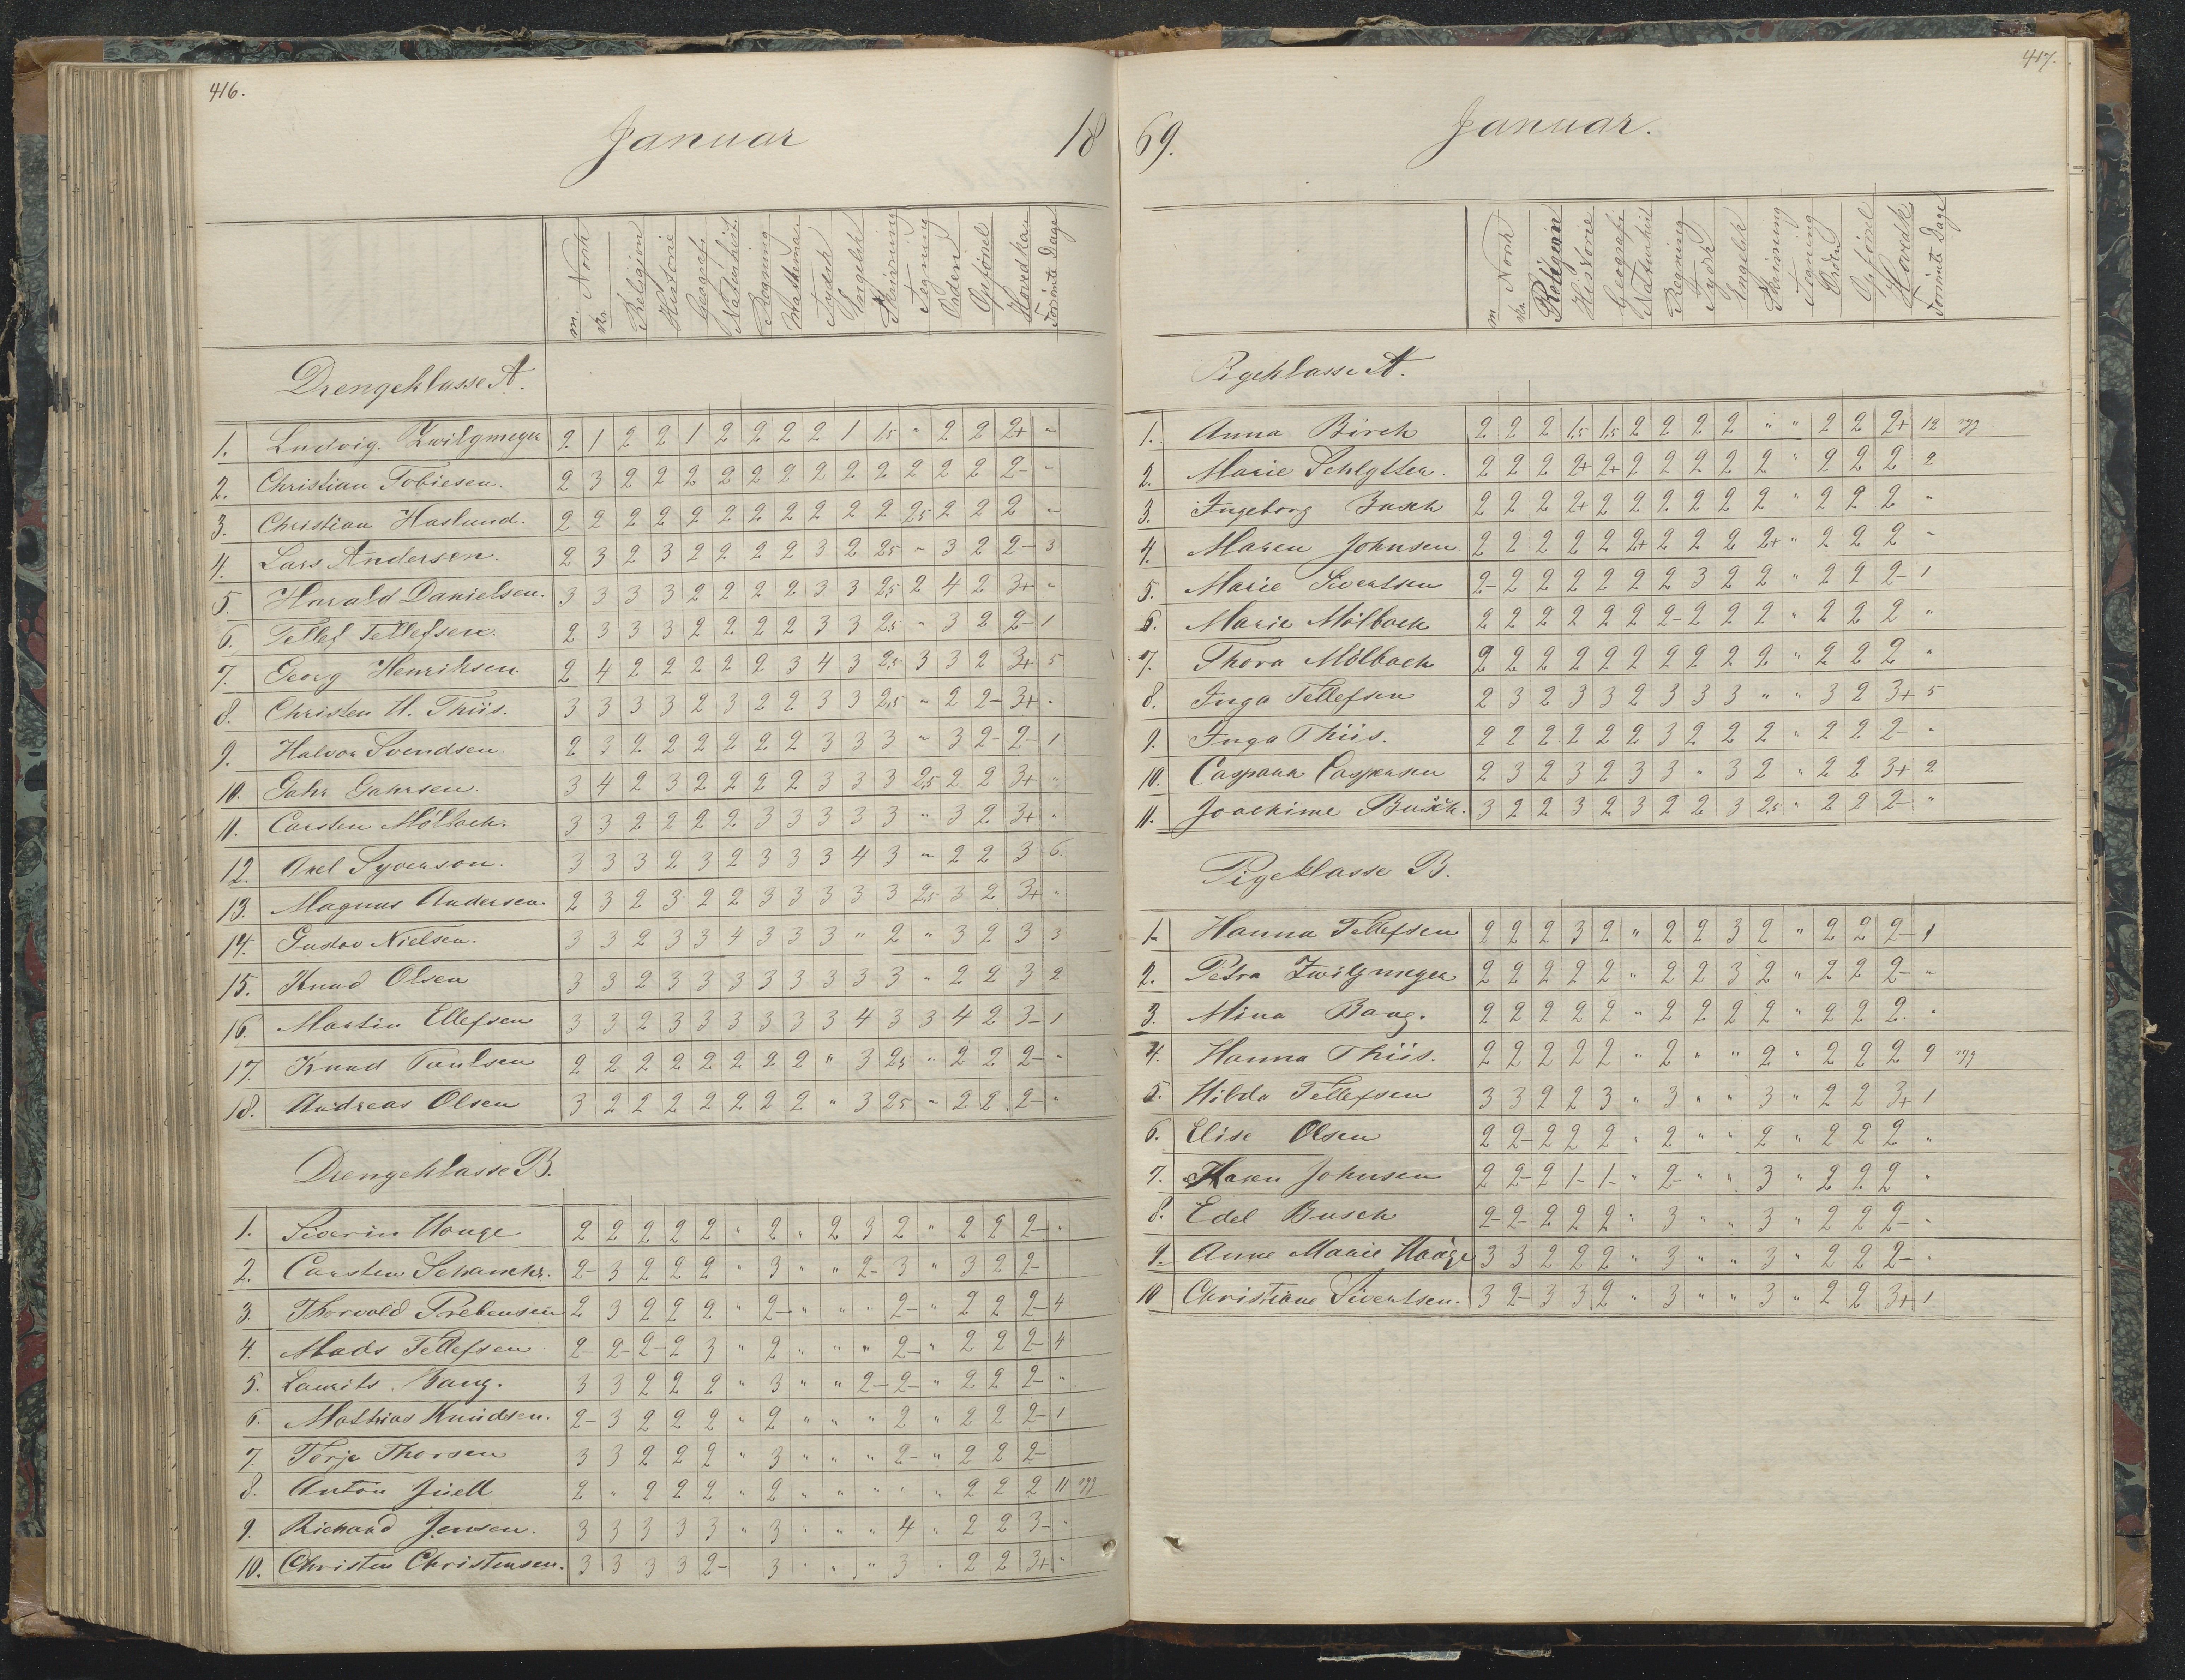 416.
Januar 18
m. Norsk
sk.
Religion
Historie
Geografi
Naturhist.
Regning
Mathema
Tydsk
Engelsk
Skrivning
Tegning
Orden
Opførsel
Hovedkar
Forsømte Dage
Drengeklasse A.
1. Ludvig Zwilgmeyer 2 1 2 2 1 2 2 2 2 1 1,5 " 2 2 2+ "
2. Christian Tobiesen. 2 3 2 2 2 2 2 2 2 2 2 2 2 2 2- "
3. Christian Haslund. 2 2 2 2 2 2 2 2 2 2 2 2,5 2 2 2 "
4. Lars Andersen. 2 3 2 3 2 2 2 2 3 2 2,5 " 3 2 2- 3
5. Harald Danielsen. 3 3 3 3 2 2 2 2 3 3 2,5 2 4 2 3+ "
6. Tellef Tellefsen. 2 3 3 3 2 2 2 2 3 3 2,5 " 3 2 2- 1
7. Georg Henriksen. 2 4 2 2 2 2 2 3 4 3 2,5 3 3 2 3+ 5
8. Christen H. Thiis. 3 3 3 3 2 3 2 2 3 3 2,5 " 2 2- 3+ "
9. Halvor Svendsen 2 3 2 2 2 2 2 2 3 3 3 " 3 2- 2- 1
10. Gahr Gahrsen. 3 4 2 3 2 2 2 2 3 3 3 2,5 2 2 3+ "
11. Carsten Mølback. 3 3 2 2 2 2 3 3 3 3 3 " 3 2 3+ "
12. Axel Syverson. 3 3 3 2 3 2 3 3 3 4 3 " 2 2 3 6
13. Magnus Andersen. 2 3 2 3 2 2 3 3 3 3 3 2,5 3 2 3+ "
14. Gustav Nielsen. 3 3 2 3 3 4 3 3 3 " 2 " 3 2 3 3
15. Knud Olsen 3 3 2 3 3 3 3 3 3 3 3 " 2 2 3 2
16. Martin Ellefsen 3 3 2 3 3 3 3 3 3 4 3 3 4 2 3- 1
17. Knud Paulsen 2 2 2 2 2 2 2 2 " 3 2,5 " 2 2 2- "
18. Andreas Olsen 3 2 2 2 2 2 2 2 " 3 2,5 " 2 2 2- "
Drengeklasse B.
1. Siverin Houge 2 2 2 2 2 " 2 " 2 3 2 " 2 2 2- "
2. Carsten Schancke. 2- 3 2 2 2 " 3 " " 2- 3 " 3 2 2-
3. Thorvald Prebensen 2 3 2 2 2 " 2- " " " 2- " 2 2 2- 4
4. Mads Tellefsen 2- 2- 2- 2 3 " 2 " " " 2- " 2 2 2- 4
5. Laurits Bang. 3 3 2 2 2 " 3 " " 2- 2- " 2 2 2- "
6. Mathias Knudsen. 2- 3 2 2 2 " 2 " " " 2 " 2 2 2- 1
7. Torje Thorsen 3 3 2 2 2 " 3 " " " 2- " 2 2 2-
8. Anton Juell 2 " 2 2 2 " 2 " " " " " 2 2 2 11 syg
9. Richard Jensen. 3 3 3 3 3 " 3 " " " 4 " 2 2 3- "
10. Christen Christensen. 3 3 3 3 2- 3 " " " 3 " 2 2 3+ "
417.
69. Januar.
m Norsk
sk.
Religion
Historie
Geografi
Naturhist
Regning
Tydsk
Engelsk
Skrivning
Tegning
Orden
Opførsel
Hovedk.
Forsømte Dage
Pigeklasse A.
1. Anna Birch 2 2 2 1,5 1,5 2 2 2 2 " " 2 2 2+ 12 syg
2. Marie Schlytter. 2 2 2 2+ 2+ 2 2 2 2 2 " 2 2 2 2
3. Ingeborg Busch 2 2 2 2+ 2 2 2 2 2 2 " 2 2 2 "
4. Maren Johnsen 2 2 2 2 2 2+ 2 2 2 2+ " 2 2 2 "
5. Marie Sivertsen 2- 2 2 2 2 2 2 3 2 2 " 2 2 2- 1
6. Marie Mölback 2 2 2 2 2 2 2- 2 2 2 " 2 2 2 "
7. Thora Mölback 2 2 2 2 2 2 2 2 2 2 " 2 2 2 "
8. Inga Tellefsen 2 3 2 3 3 2 3 3 3 " " 3 2 3+ 5
9. Inga Thiis. 2 2 2 2 2 2 3 2 2 2 " 2 2 2- "
10. Caspara Caspersen 2 3 2 3 2 3 3 " 3 2 " 2 2 3+ 2
11. Joachime Busch. 3 2 2 3 2 3 2 2 3 2,5 " 2 2 2- "
Pigeklasse B.
1. Hanna Tellefsen 2 2 2 3 2 " 2 2 3 2 " 2 2 2- 1
2. Petra Zwilgmeyer 2 2 2 2 2 " 2 2 3 2 " 2 2 2- "
3. Mina Bang. 2 2 2 2 2 " 2 2 2 2 " 2 2 2. "
4. Hanna Thiis. 2 2 2 2 2 " 2 " " 2 " 2 2 2 9 syg
5. Hilda Tellefsen 3 3 2 2 3 " 3 " " 3 " 2 2 3+ 1
6. Elise Olsen 2 2- 2 2 2 " 2 " " 2 " 2 2 2 "
7. Karen Johnsen 2 2- 2 1- 1- " 2- " " 3 " 2 2 2 "
8. Edel Busch 2- 2- 2 2 2 " 3 " " 3 " 2 2 2- "
9. Anne Marie Haage 3 3 2 2 2 " 3 " " 3 " 2 2 2- "
10 Christiane Sivertsen. 3 2- 3 3 2 " 3 " " 3 " 2 2 3+ 1